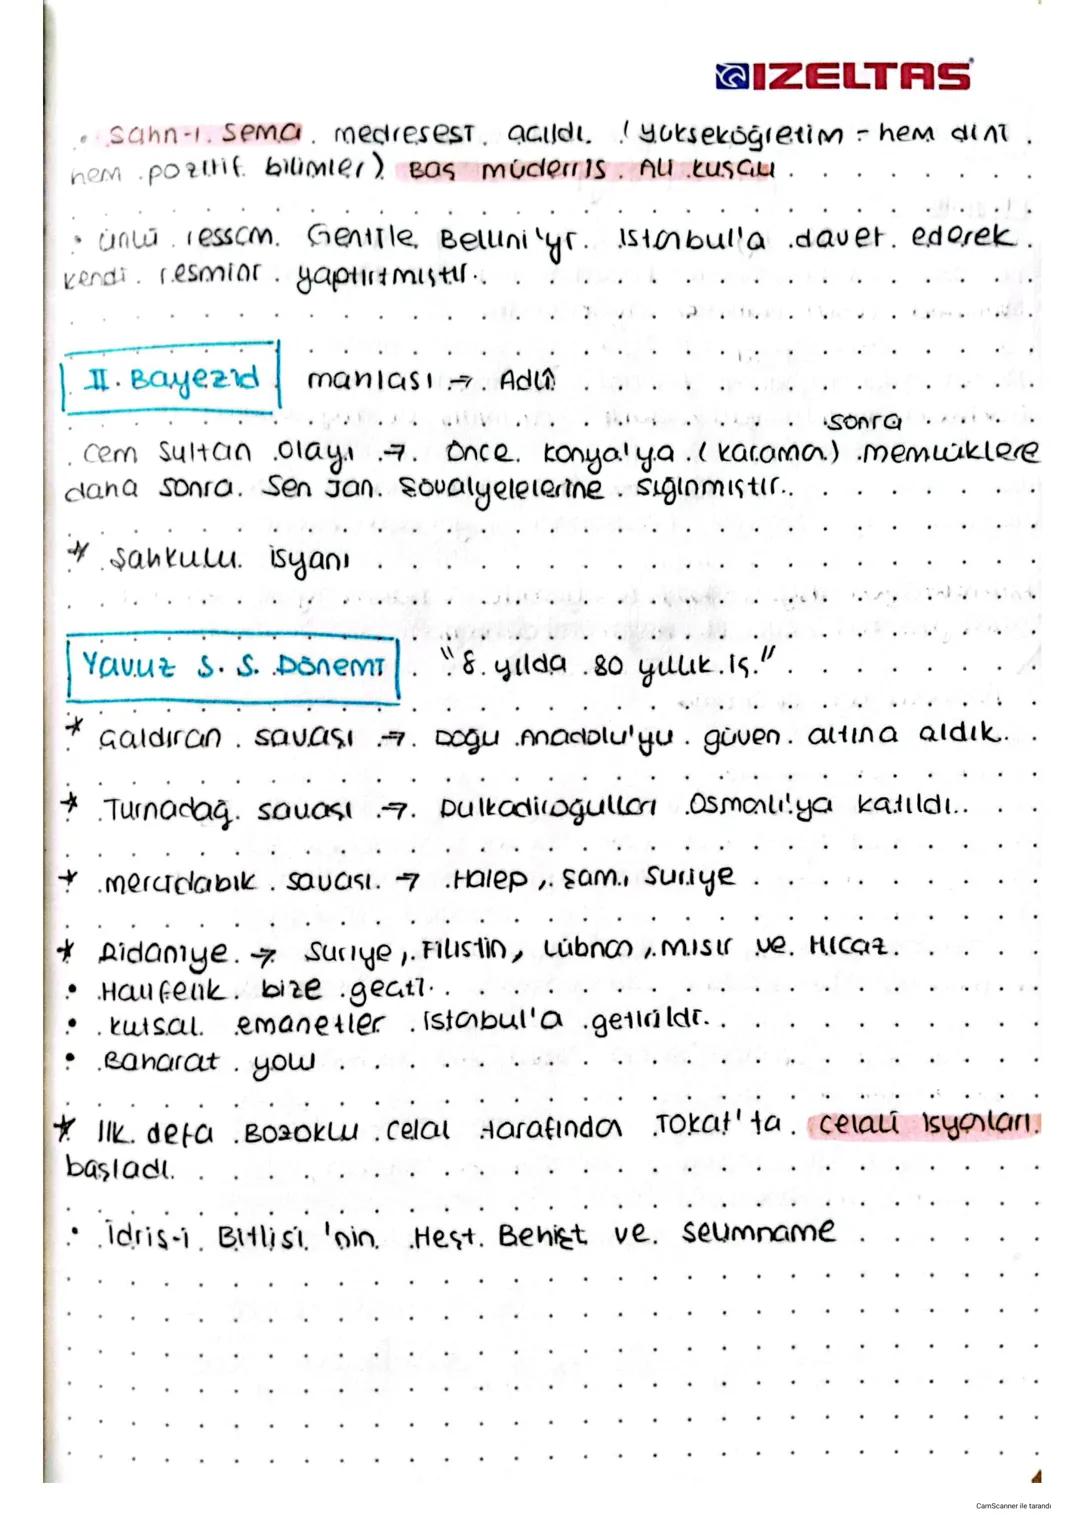 IZELTAS
• Sahn-ı Sema medresesi açıldı. (Yükseköğretim - hem dini
hem pozitif bilimler) Baş müderris Ali Kuşçu
• ünlü ressam Gentile Bellini'yi İstanbul'a davet ederek
kendi resmini yaptırtmıştır.
II. Bayezid mahlası → Adlî
sonra
Cem Sultan olayı → Önce Konya'ya (Karaman) memlüklere
daha sonra Sen Jan Şövalyelelerine sığınmıştır.
* Şahkulu isyanı
Yavuz S. S. Dönemi "8 yılda 80 yıllık iş."
* Çaldıran savaşı → Doğu Anadolu'yu güven altına aldık.
* Turnadağ savaşı → Dulkadiroğulları Osmanlı'ya katıldı.
* mercidabık savaşı → Halep, Şam, Suriye
* Ridaniye → Suriye, Filistin, Lübnan, Mısır ve Hicaz.
• Halifelik bize geçti.
• kutsal emanetler İstanbul'a getirildi.
• Baharat yolu
* İlk defa Bozoklu Celal tarafından Tokat'ta celali isyanları
başladı.
• İdris-i Bitlisi'nin Heşt Behişt ve Selimname
CamScanner ile tarandı